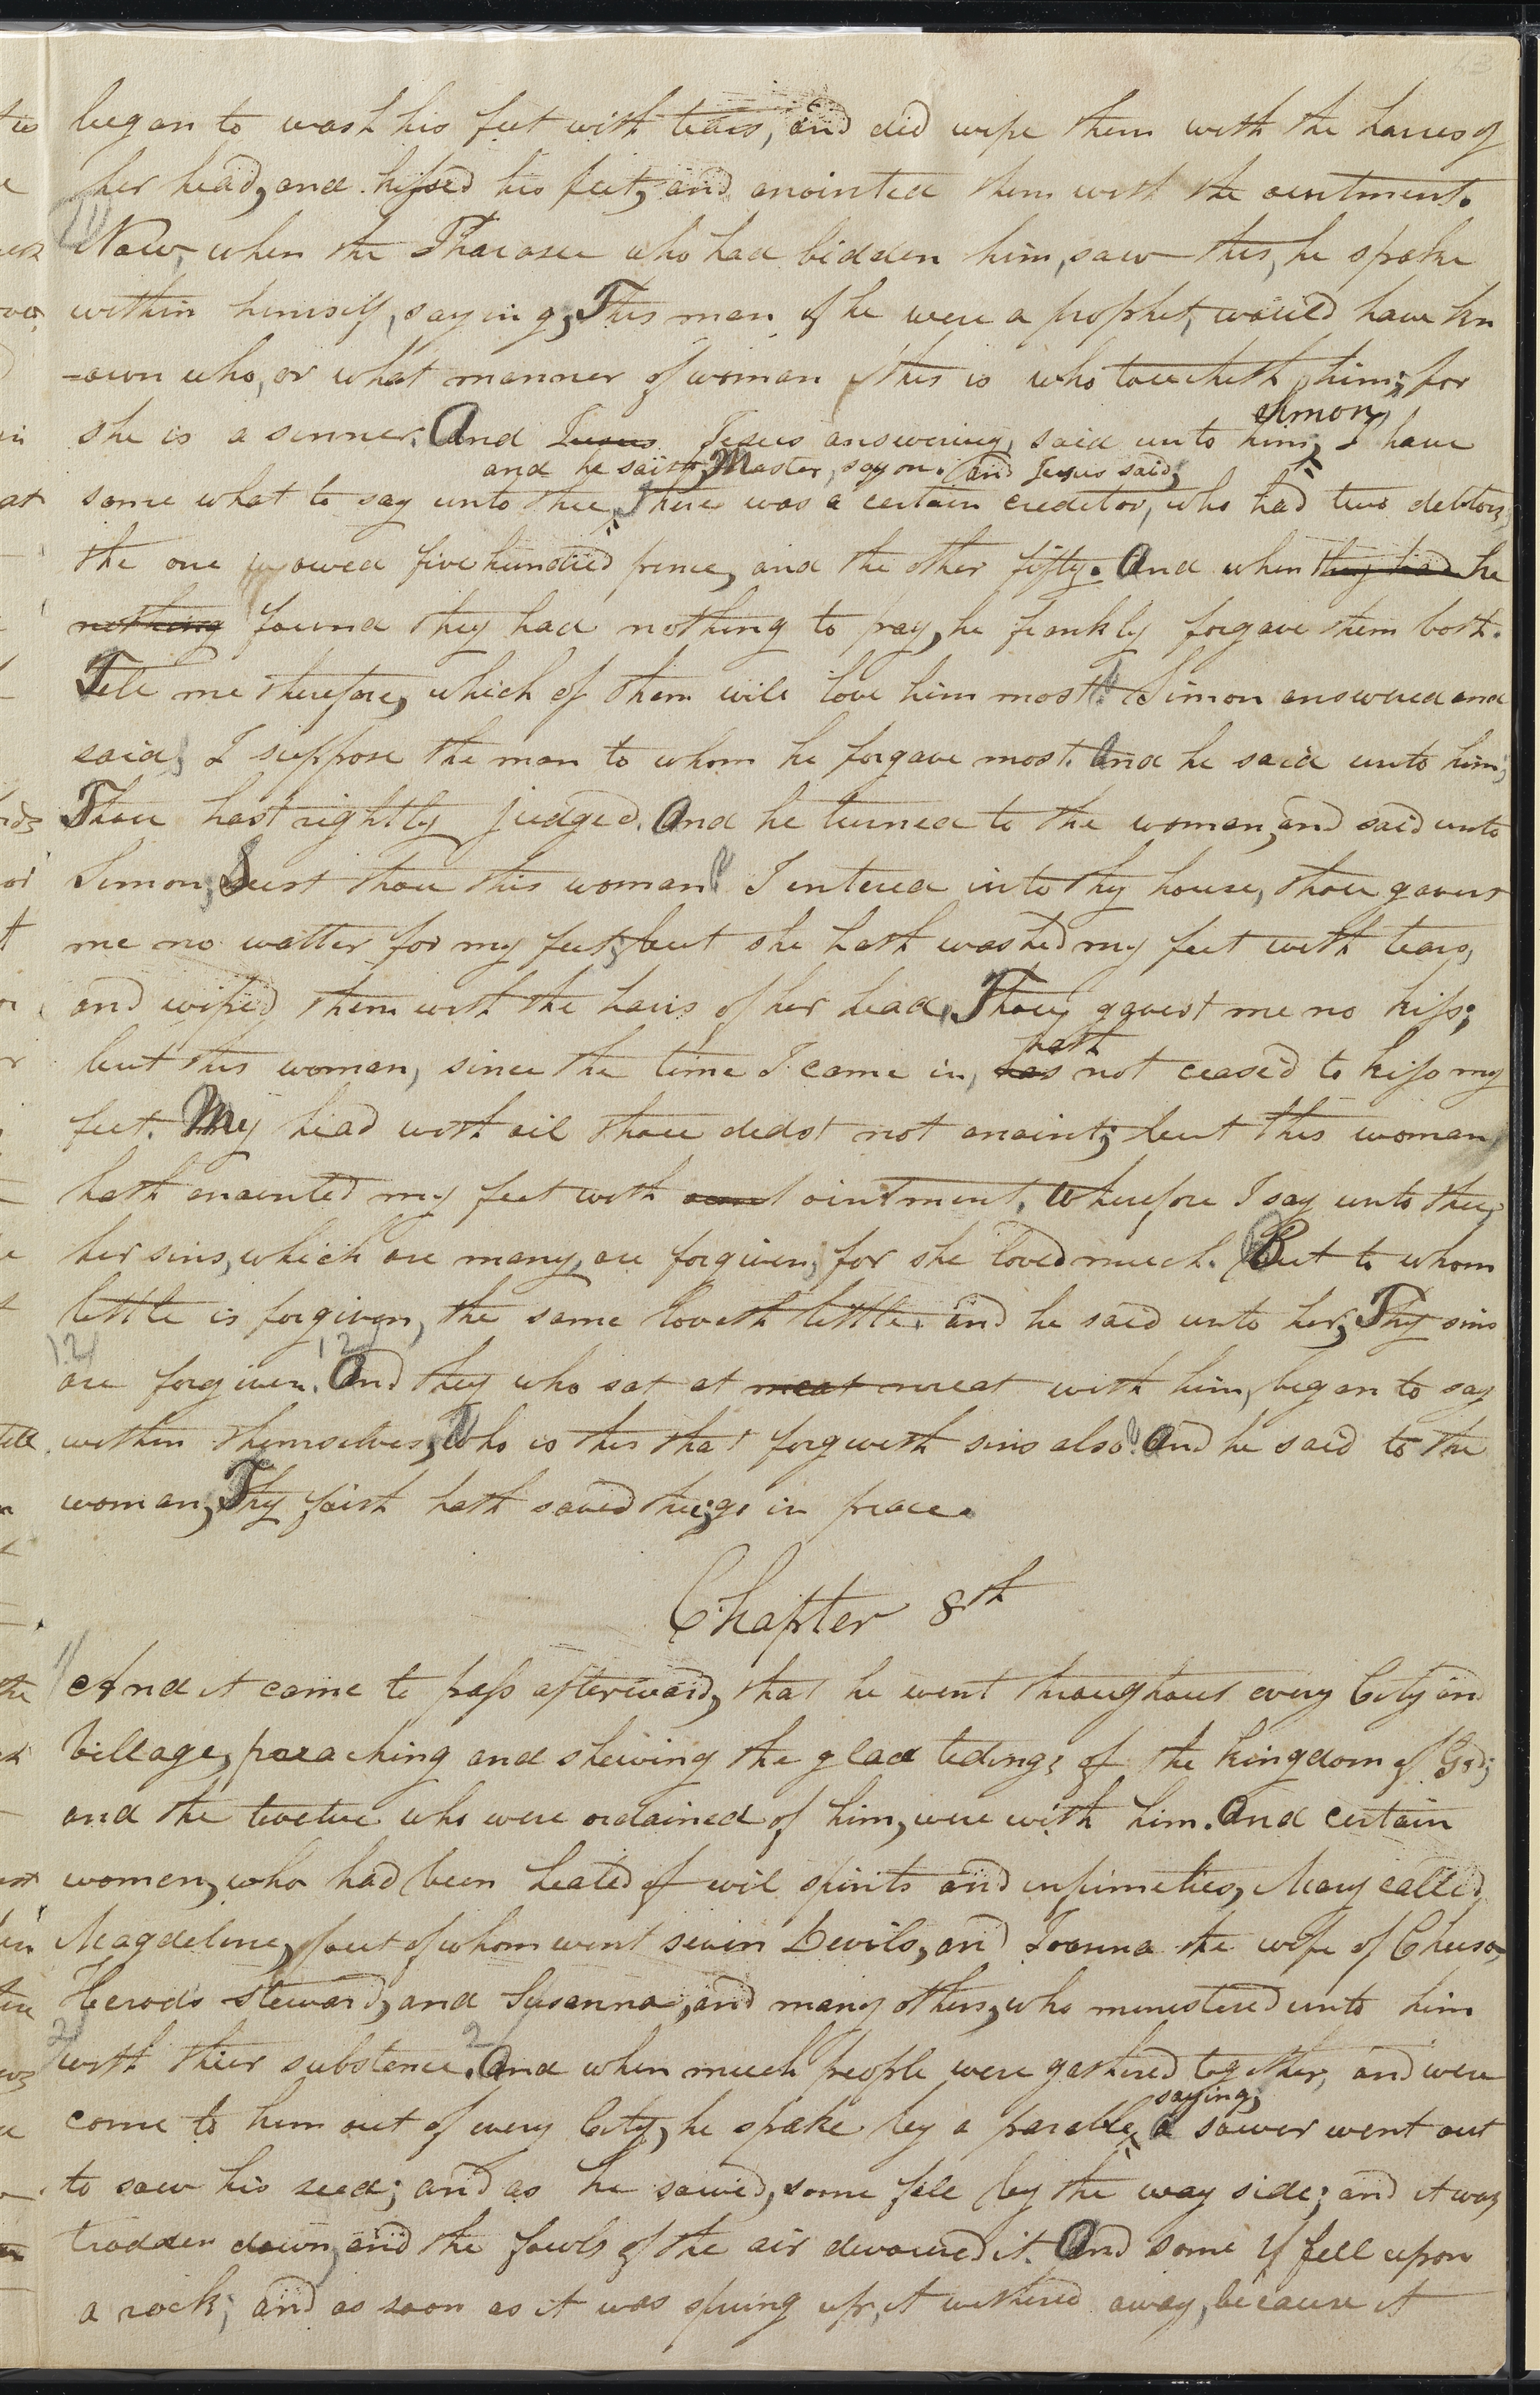 began to wash his feet with tears, and did wipe them with the haires of
her head, and kissed his feet, and anointed them with the ointment.
11 Now, when the Pharasee who had bidden him, saw this, he spake
within himself, saying, This man if he were a prophet, would have kn
=own who, or what manner of woman this is who toucheth him; for
she is a sinner. And Jesus Jesus answering, said unto him; Simon, I have
some what to say unto thee, and he saith, Master, say on. and Jesus said; There was a certain creditor, who had two debtors,
the one owed five hundred pence, and the other fifty. And when they had he
nothing found they had nothing to pay, he frankly forgave them both.
Tell me therefore, which of them will love him most? Simon answered and
said, I suppose the man to whom he forgave most. And he said unto him;
Thou hast rightly judged. And he turned to the woman, and said unto
Simon, Seest thou this woman? I entered into thy house, thou gavest
me no watter for my feet; but she hath washed my feet with tears,
and wiped them with the hairs of her head, Thou gavest me no kiss;
but this woman, since the time I came in, has hath not ceased to kiss my
feet. My head with oil thou dedst not anoint; but this woman
hath anointed my feet with ointment, Wherefore I say unto thee,
her sins, which are many, are forgiven; for she loved much. But to whom
little is forgiven, the same loveth little. and he said unto her, Thy sins
12 are forgiven. 12 And they who sat at meat meat with him, began to say
within themselves, Who is this that forgiveth sins also? And he said to the
woman, Thy faith hath saved thee; go in peace.
Chapter 8th
1 And it came to pass afterward, that he went throughout every City and
Village, preaching and shewing the glad tidings of the kingdom of God;
and the twelve who were ordained of him, were with him. And certain
women, who had been healed of evil spirits and infirmeties, Mary called
Magdeline, out of whom went seven Devils, and Joanna the wife of Chusa,
Herods steward, and Susanna, and many others, who menestered unto him
2 with thier substance. 2 And when much people were gathered together, and were
come to him out of every City, he spake by a parable, saying; a sower went out
to sow his seed; and as he sowed, some fell by the way side; and it was
trodden down, and the fowls of the air devoured it. And some fell upon
a rock; and as soon as it was sprung up, it withered away, because it